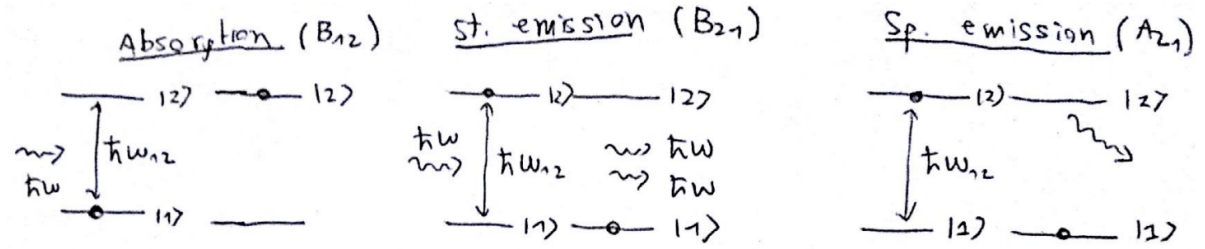 Absorption (B₁₂)
|2⟩ |2⟩
ħω₁₂
ħω
|1⟩
st. emission (B₂₁)
|2⟩ |2⟩
ħω ħω₁₂ ħω
ħω
|1⟩ |1⟩
Sp. emission (A₂₁)
|2⟩ |2⟩
ħω₁₂
|1⟩ |1⟩